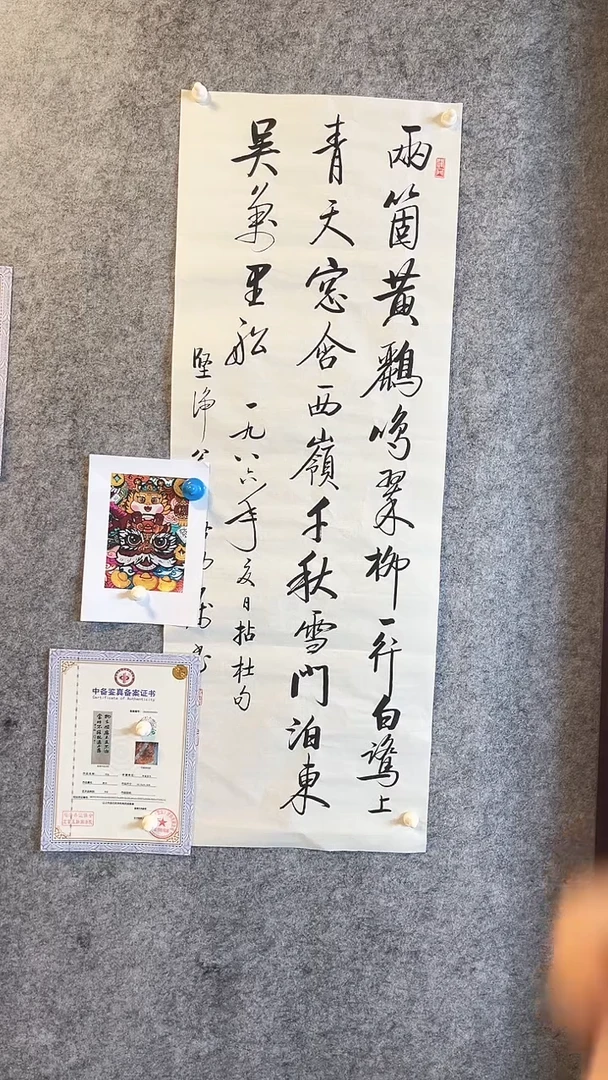 兩箇黃鸝鳴翠柳一行白鷺上
青天窓含西嶺千秋雪門泊東
吳萬里船
一九八六年夏日拈杜句
堅淨
中备鉴真备案证书
Certificate of Authenticity